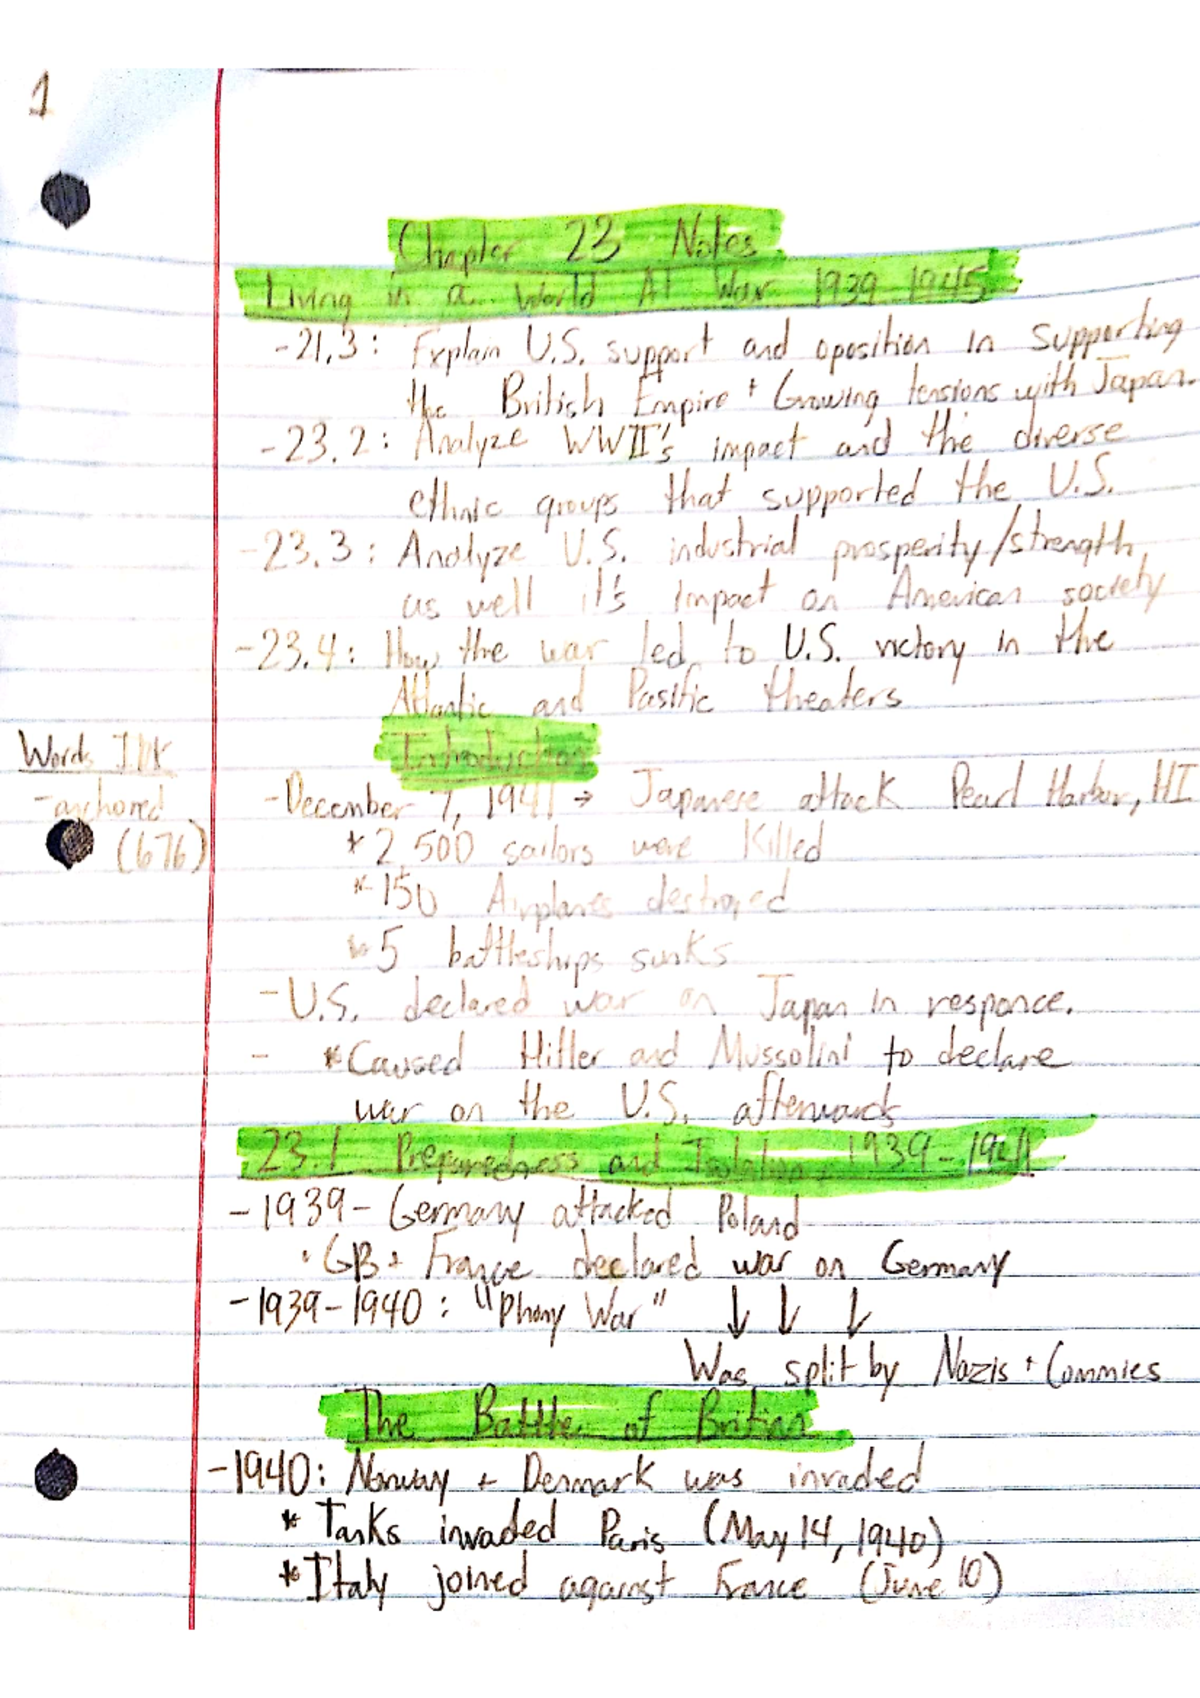 1
Chapter 23 Notes
Living in a World At War 1939-1945
-21.3: Explain U.S. support and oposition in supporting
the British Empire + Growing tensions with Japan.
-23.2: Analyze WWII's impact and the diverse
ethnic groups that supported the U.S.
-23.3: Analyze U.S. industrial prosperity/strength,
as well it's impact on American society
-23.4: How the war led to U.S. victory in the
Atlantic and Pasific theaters
Introduction
Words IDK
-anchored
(676)
-December 7, 1941 → Japanese attack Pearl Harbor, HI
* 2,500 sailors were killed
* 150 Airplanes destroyed
* 5 battleships sunks
-U.S. declared war on Japan in responce.
- *Caused Hitler and Mussolini to declare
war on the U.S. afterwards
23.1 Preparedness and Isolation, 1939-1941
-1939- Germany attacked Poland
• GB + France declared war on Germany
-1939-1940: "Phony War" ↓ ↓ ↓
Was split by Nazis + Commies
The Battle of Britian
-1940: Norway + Denmark was invaded
* Tanks invaded Paris (May 14, 1940)
* Italy joined against France (June 10)